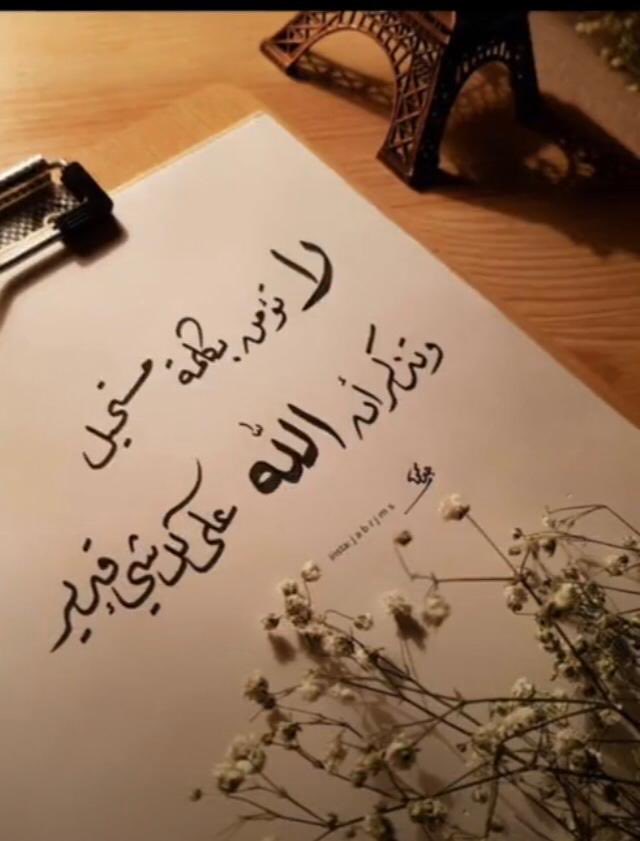 لا تؤمن بكلمة مستحيل
وتذكر أن الله
على كل شيء قدير
insta:jabrjms